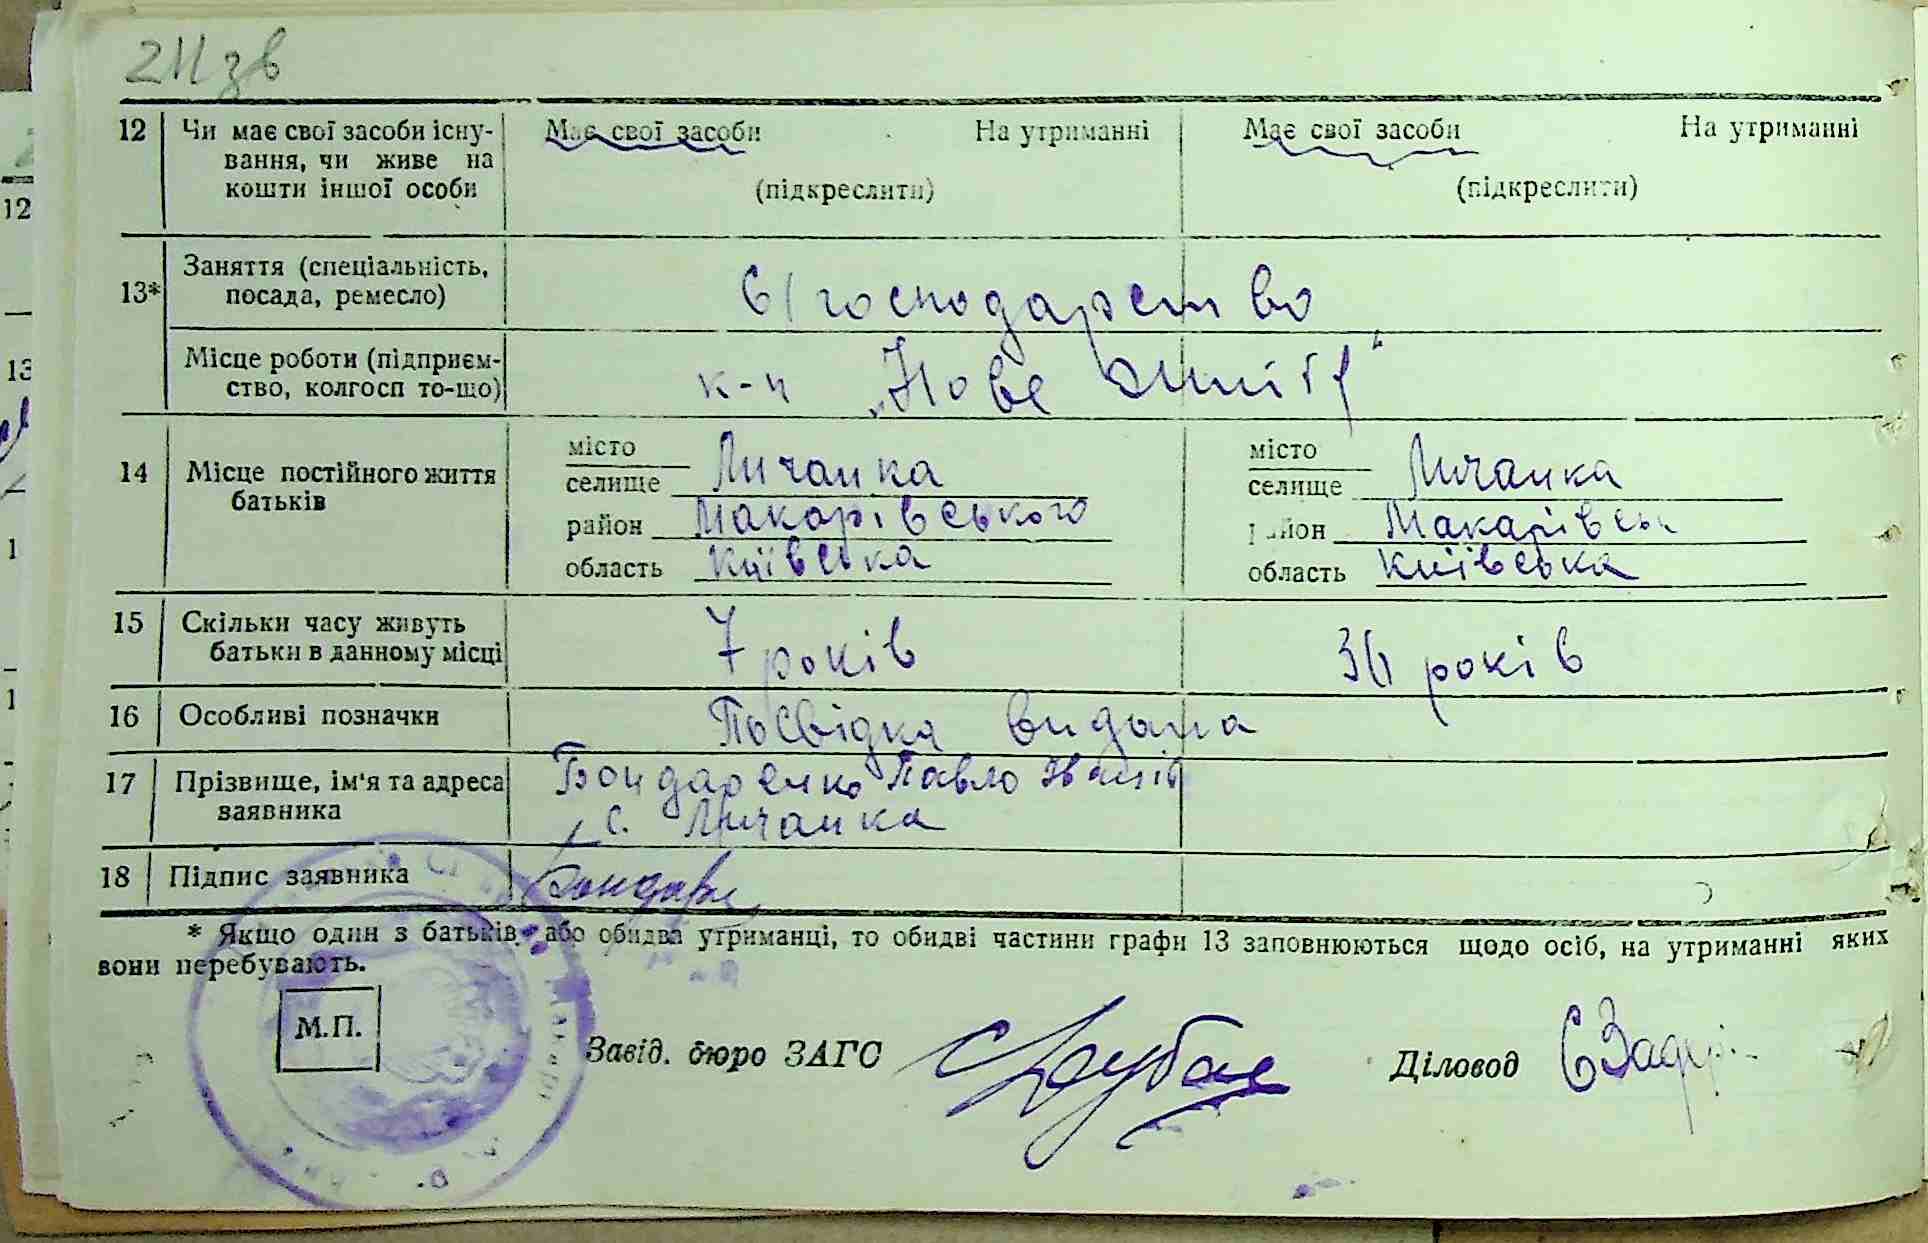 211 зв
12 Чи має свої засоби існу- Має свої засоби На утриманні Має свої засоби На утриманні
вання, чи живе на
кошти іншої особи (підкреслити) (підкреслити)
13* Заняття (спеціальність,
посада, ремесло) с/господарство
Місце роботи (підприєм-
ство, колгосп то-що) к-п „Нове життя“
14 Місце постійного життя
батьків
місто місто
селище Личанка селище Личанка
район Макарівського район Макарівськ
область Київська область Київська
15 Скільки часу живуть
батьки в данному місці 7 років років
16 Особливі позначки Посвідка видана
17 Прізвище, ім'я та адреса Бондаренко Павло Іванів
заявника с. Личанка
18 Підпис заявника Бондаре
* Якщо один з батьків, або обидва утриманці, то обидві частини графи 13 заповнюються щодо осіб, на утриманні яких
вони перебувають.
М.П.
Завід. бюро ЗАГС Діловод